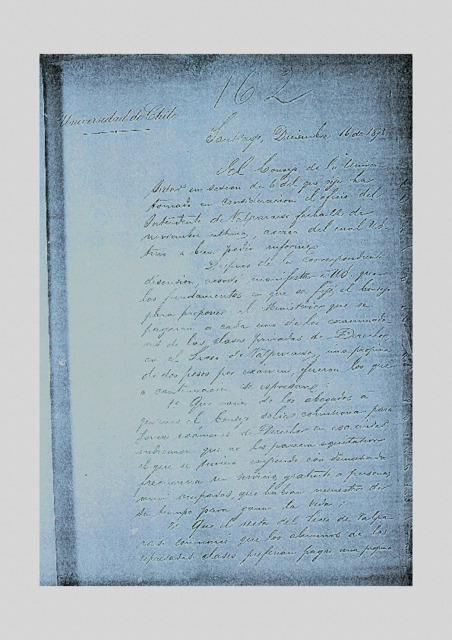 162
Universidad de Chile
Santiago, Diciembre 16 de 189
El Consejo de la Univer-
sidad en sesion de 6 del que rije ha
tomado en consideracion el oficio del
Intendente de Valparaiso fecha de
noviembre último, acerca del cual US.
tuvo a bien pedir informe.
Despues de la correspondiente
discusion, acordó manifestar a US. que
los fundamentos en que se fijó el Consejo
para proponer al Ministerio que se
pagaran a cada uno de los examinado-
res de las clases privadas de Derecho
en el Liceo de Valparaiso, una propina
de dos pesos por exámen, fueron los que
a continuacion se espresan:
1º Que varios de los abogados a
quienes el Consejo solia comisionar para
exámenes de Derecho en esa ciudad
indicaron que no les parecia equitativo
el que se demasiada
frecuencia un servicio gratuito a personas
mui ocupadas, que habian menester de
su tiempo para ganar la vida;
2º Que el rector del Liceo de Valpa-
raiso, que los alumnos de las
espresadas clases preferian pagar una propina